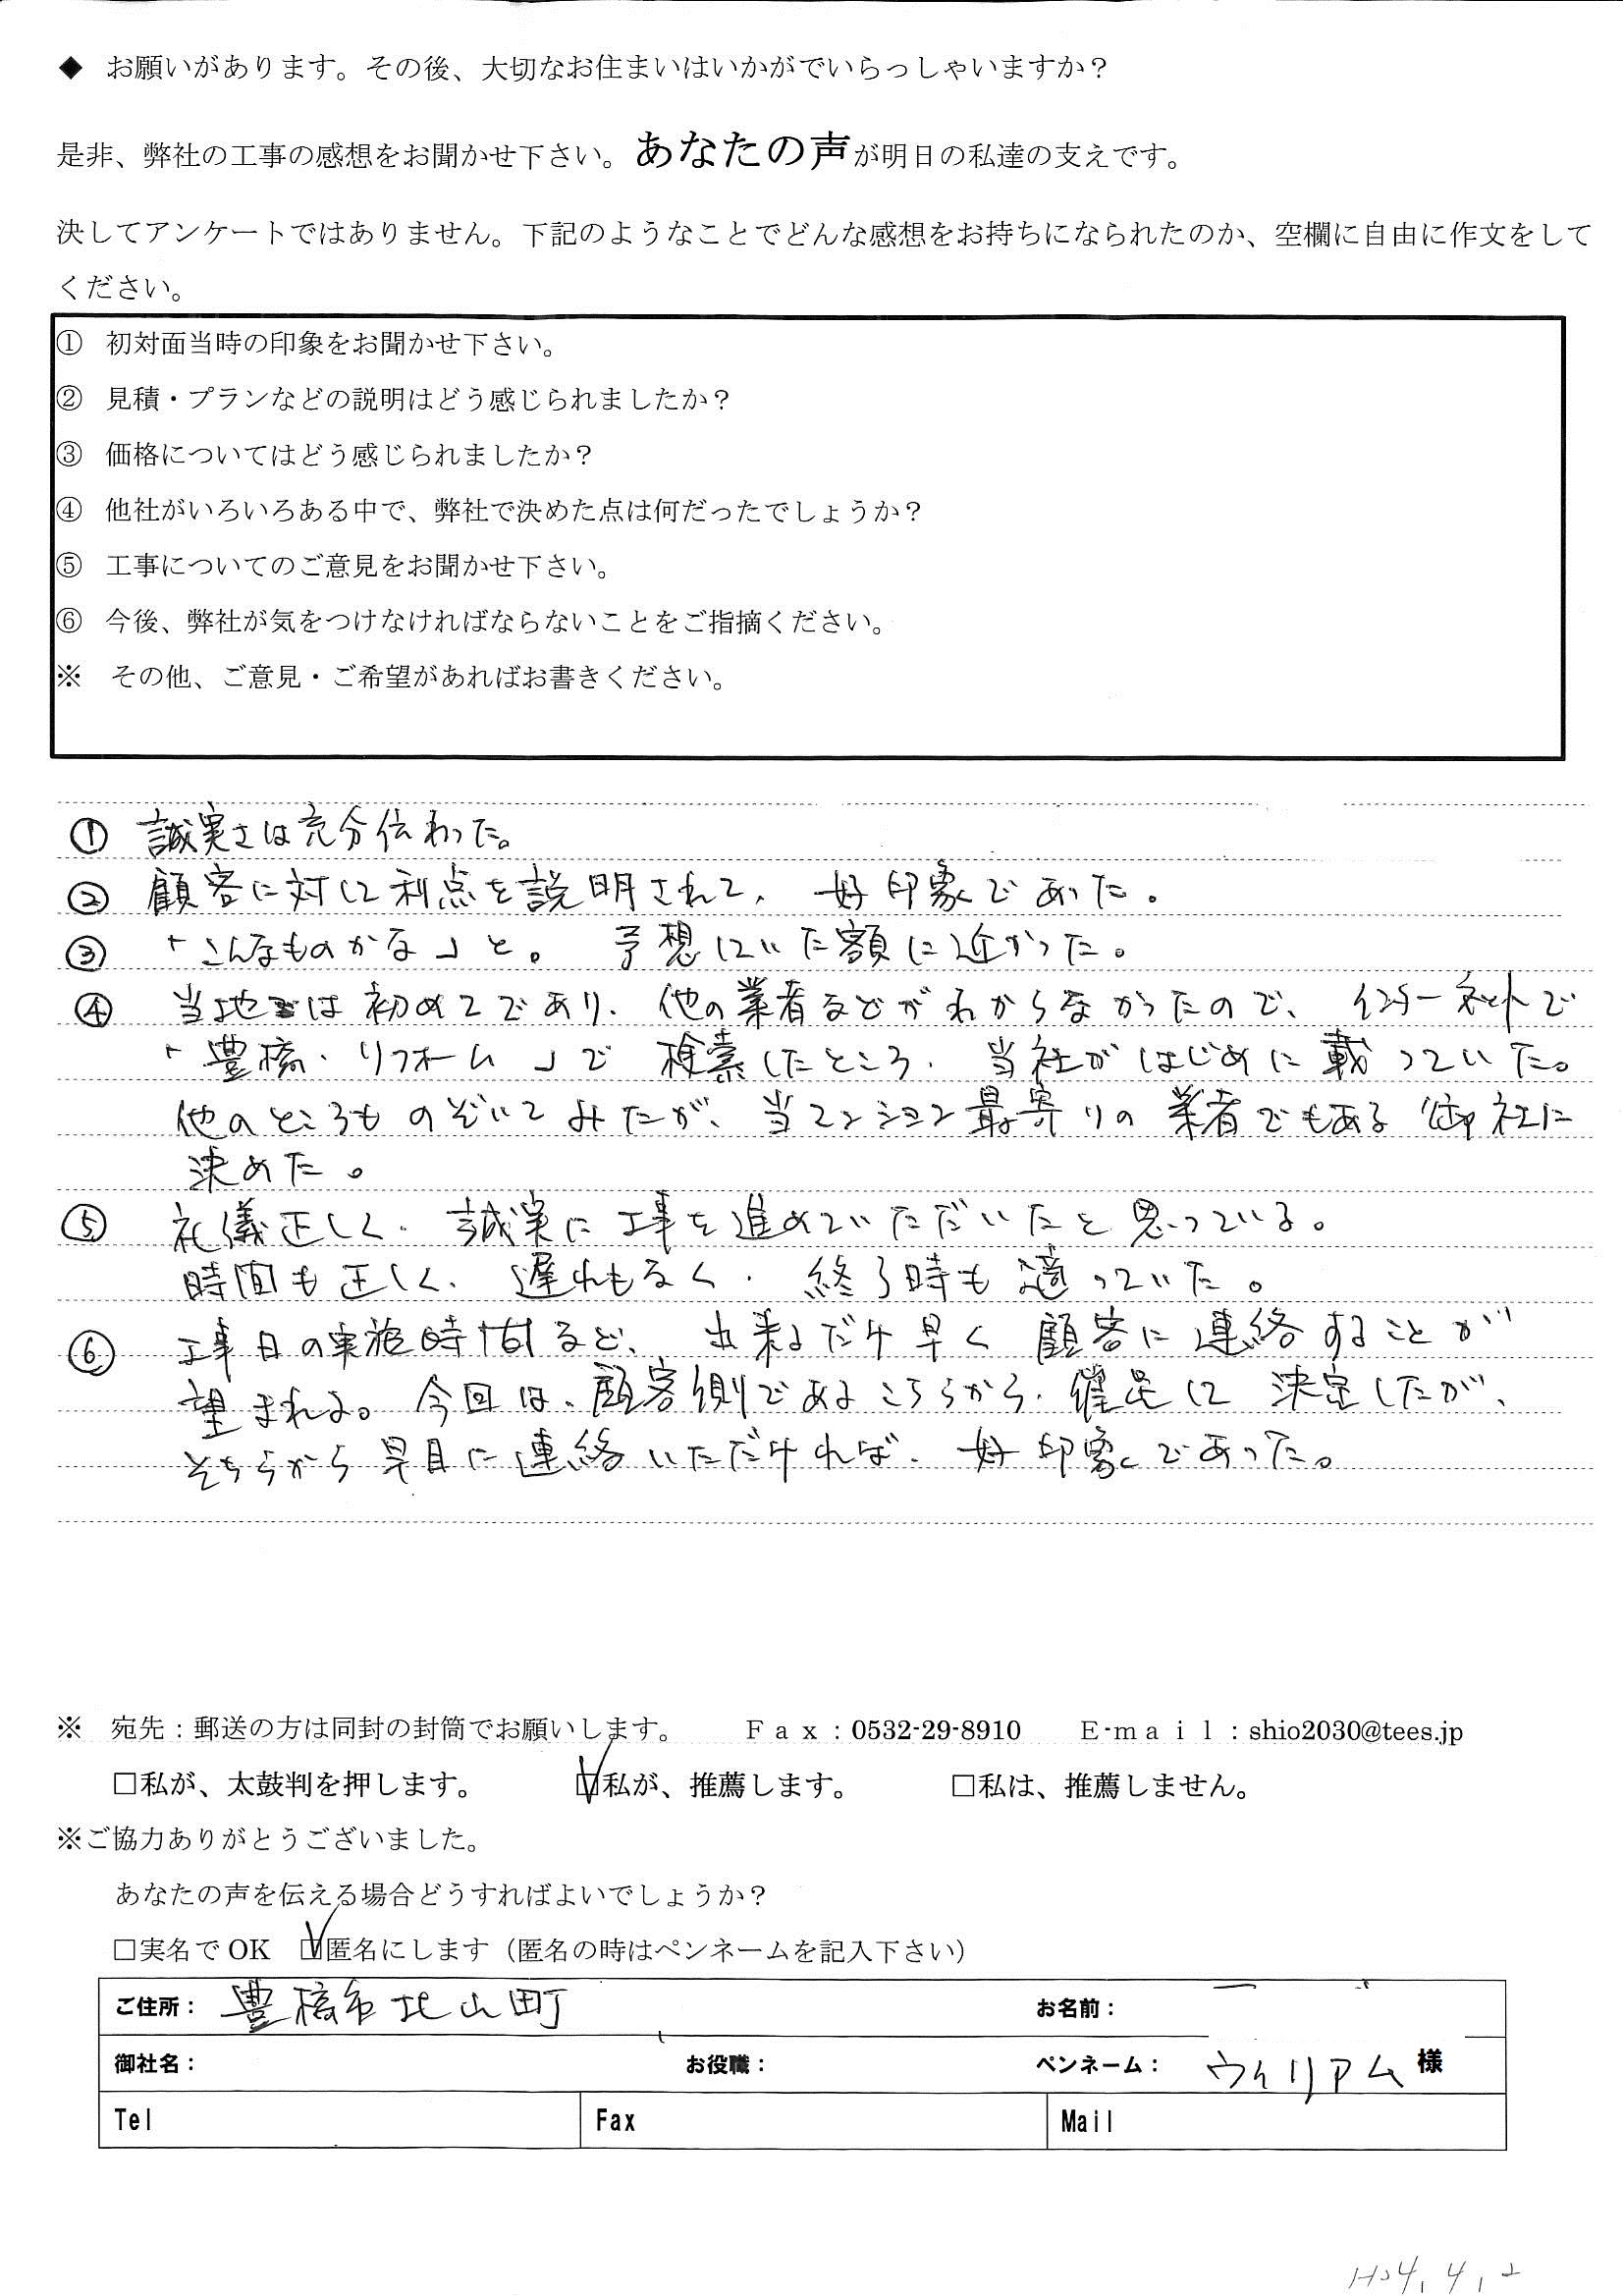 ◆ お願いがあります。その後、大切なお住まいはいかがでいらっしゃいますか？
是非、弊社の工事の感想をお聞かせ下さい。あなたの声が明日の私達の支えです。
決してアンケートではありません。下記のようなことでどんな感想をお持ちになられたのか、空欄に自由に作文をして
ください。
① 初対面当時の印象をお聞かせ下さい。
② 見積・プランなどの説明はどう感じられましたか？
③ 価格についてはどう感じられましたか？
④ 他社がいろいろある中で、弊社で決めた点は何だったでしょうか？
⑤ 工事についてのご意見をお聞かせ下さい。
⑥ 今後、弊社が気をつけなければならないことをご指摘ください。
※ その他、ご意見・ご希望があればお書きください。
① 誠実さは充分伝わった。
② 顧客に対して利点を説明されて、好印象であった。
③ 「こんなものかな」と。 予想していた額に近かった。
④ 当地では初めてであり、他の業者などがわからなかったので、インターネットで
「豊橋・リフォーム」で検索したところ、当社がはじめに載っていた。
他のところものぞいてみたが、当マンション最寄りの業者でもある御社に
決めた。
⑤ 礼儀正しく、誠実に工事を進めていただいたと思っている。
時間も正しく、遅れもなく、終了時も適っていた。
⑥ 工事日の実施時間など、出来るだけ早く顧客に連絡することが
望まれる。今回は、顧客側であるこちらから、催足して決定したが、
そちらから早目に連絡いただければ、好印象であった。
※ 宛先：郵送の方は同封の封筒でお願いします。 Ｆａｘ：0532-29-8910 Ｅ-ｍａｉｌ：shio2030@tees.jp
□私が、太鼓判を押します。 ☑私が、推薦します。 □私は、推薦しません。
※ご協力ありがとうございました。
あなたの声を伝える場合どうすればよいでしょうか？
□実名でOK ☑匿名にします（匿名の時はペンネームを記入下さい）
ご住所： 豊橋市北山町 お名前：
御社名： お役職： ペンネーム： ウィリアム 様
Tel Fax Mail
H24.4.2